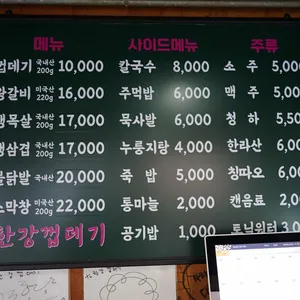 메뉴 사이드메뉴 주류
껍데기 국내산 200g 10,000 칼국수 8,000 소 주 5,000
갈비 미국산 220g 16,000 주먹밥 6,000 맥 주 5,000
목살 국내산 200g 17,000 묵사발 6,000 청 하 5,50
삼겹 국내산 200g 17,000 누룽지탕 4,000 한라산 6,00
닭발 국내산 200g 20,000 죽 밥 5,000 칭따오 6,00
막창 미국산 200g 22,000 통마늘 2,000 캔음료 2,00
한강껍데기 공기밥 1,000 토닉워터 3,00